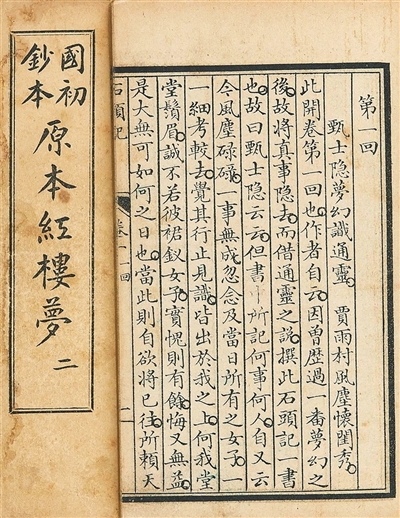 第一回
甄士隐夢幻識通靈 賈雨村風塵懷閨秀
此開卷第一回也作者自云因曾歷過一番夢幻之
後故將真事隐去而借通靈之説撰此石頭記一書
也故曰甄士隐云云但書中所記何事何人自又云
今風塵碌碌一事無成忽念及當日所有之女子一
一細考較去覺其行止見識皆出於我之上何我堂
堂鬚眉誠不若彼裙釵女子實愧則有餘悔又無益
是大無可如何之日也當此則自欲將已往所賴天
石頭記
國初
鈔本
原本紅樓夢
二